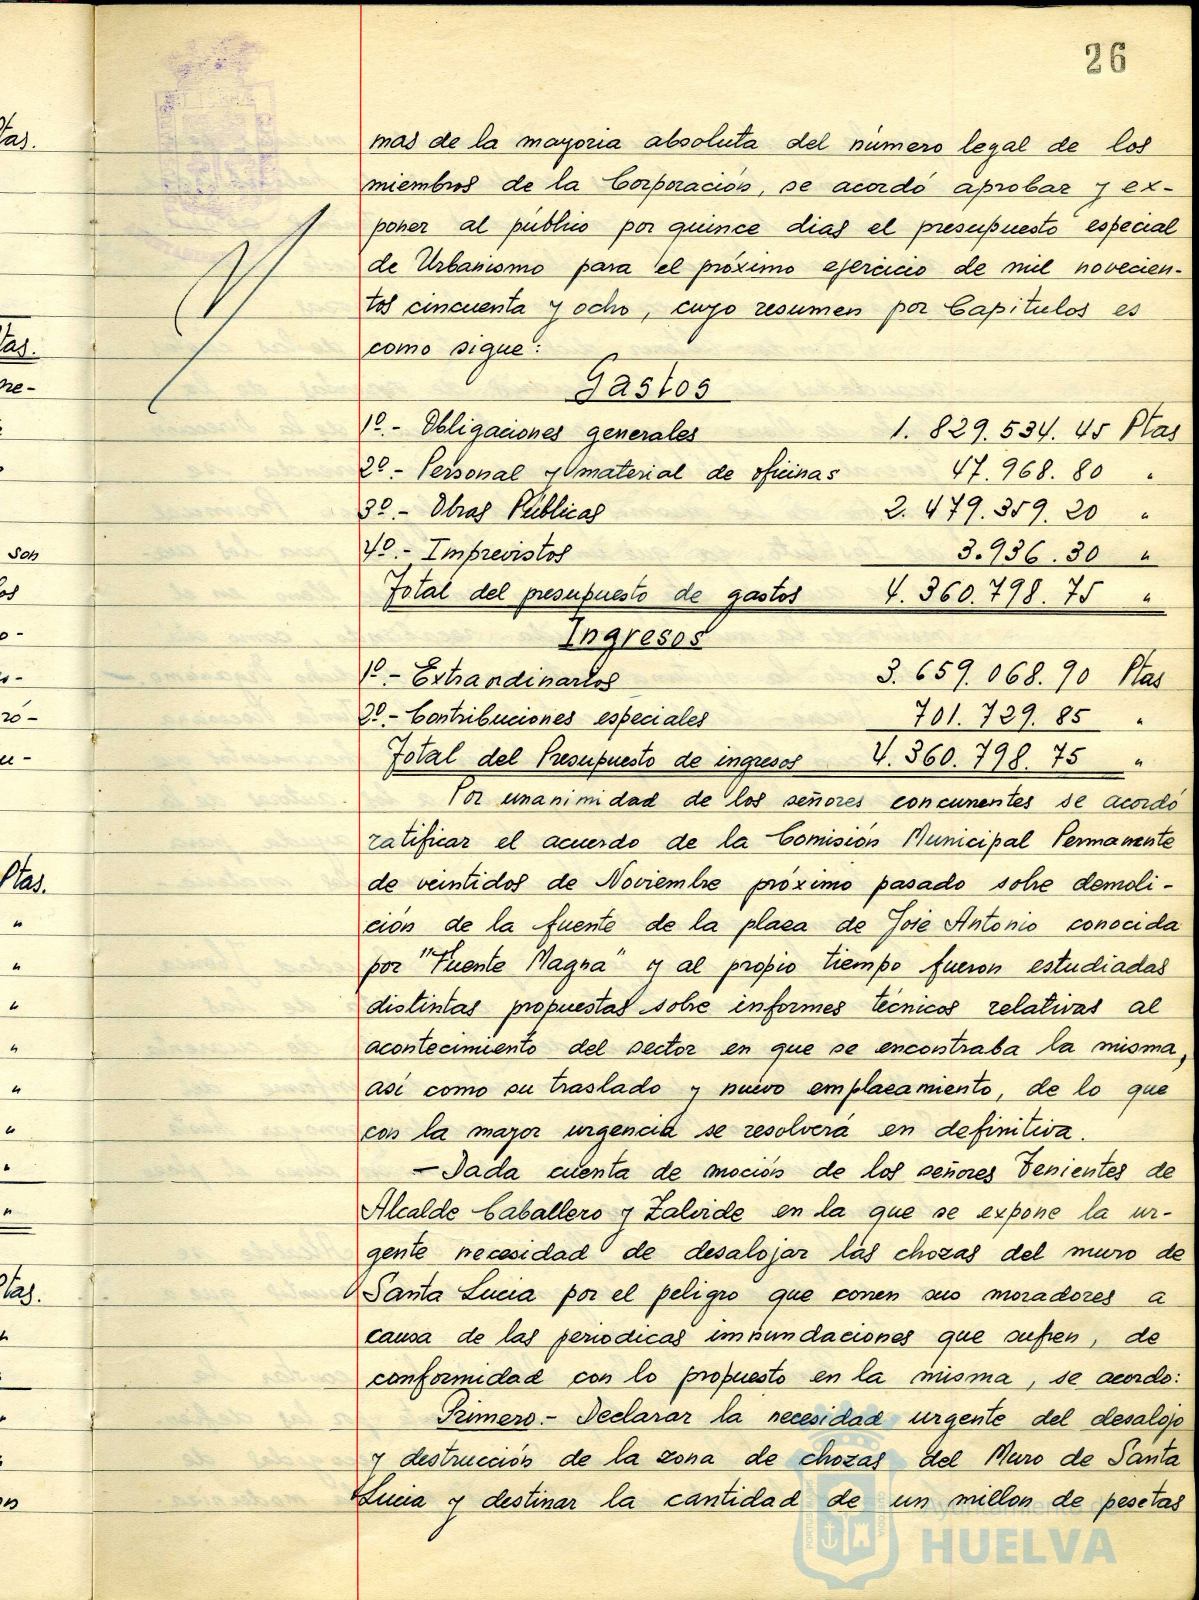 26
mas de la mayoria absoluta del número legal de los
miembros de la Corporación, se acordó aprobar y ex-
poner al público por quince dias el presupuesto especial
de Urbanismo para el próximo ejercicio de mil novecien-
tos cincuenta y ocho, cuyo resumen por Capitulos es
como sigue:
Gastos
1º.- Obligaciones generales 1.829.534.45 Ptas
2º.- Personal y material de oficinas 47.968.80 "
3º.- Obras Públicas 2.479.359.20 "
4º.- Imprevistos 3.936.30 "
Total del presupuesto de gastos 4.360.798.75 "
Ingresos
1º.- Extraordinarios 3.659.068.90 Ptas
2º.- Contribuciones especiales 701.729.85 "
Total del Presupuesto de ingresos 4.360.798.75 "
Por unanimidad de los señores concurrentes se acordó
ratificar el acuerdo de la Comisión Municipal Permanente
de veintidos de Noviembre próximo pasado sobre demoli-
ción de la fuente de la plaza de José Antonio conocida
por "Fuente Magna" y al propio tiempo fueron estudiadas
distintas propuestas sobre informes técnicos relativas al
acontecimiento del sector en que se encontraba la misma,
así como su traslado y nuevo emplazamiento, de lo que
con la mayor urgencia se resolverá en definitiva.
- Dada cuenta de moción de los señores Tenientes de
Alcalde Caballero y Zalvide en la que se expone la ur-
gente necesidad de desalojar las chozas del muro de
Santa Lucia por el peligro que corren sus moradores a
causa de las periodicas innundaciones que sufren, de
conformidad con lo propuesto en la misma, se acordo:
Primero.- Declarar la necesidad urgente del desalojo
y destrucción de la zona de chozas del Muro de Santa
Lucia y destinar la cantidad de un millon de pesetas
Ayuntamiento de
HUELVA